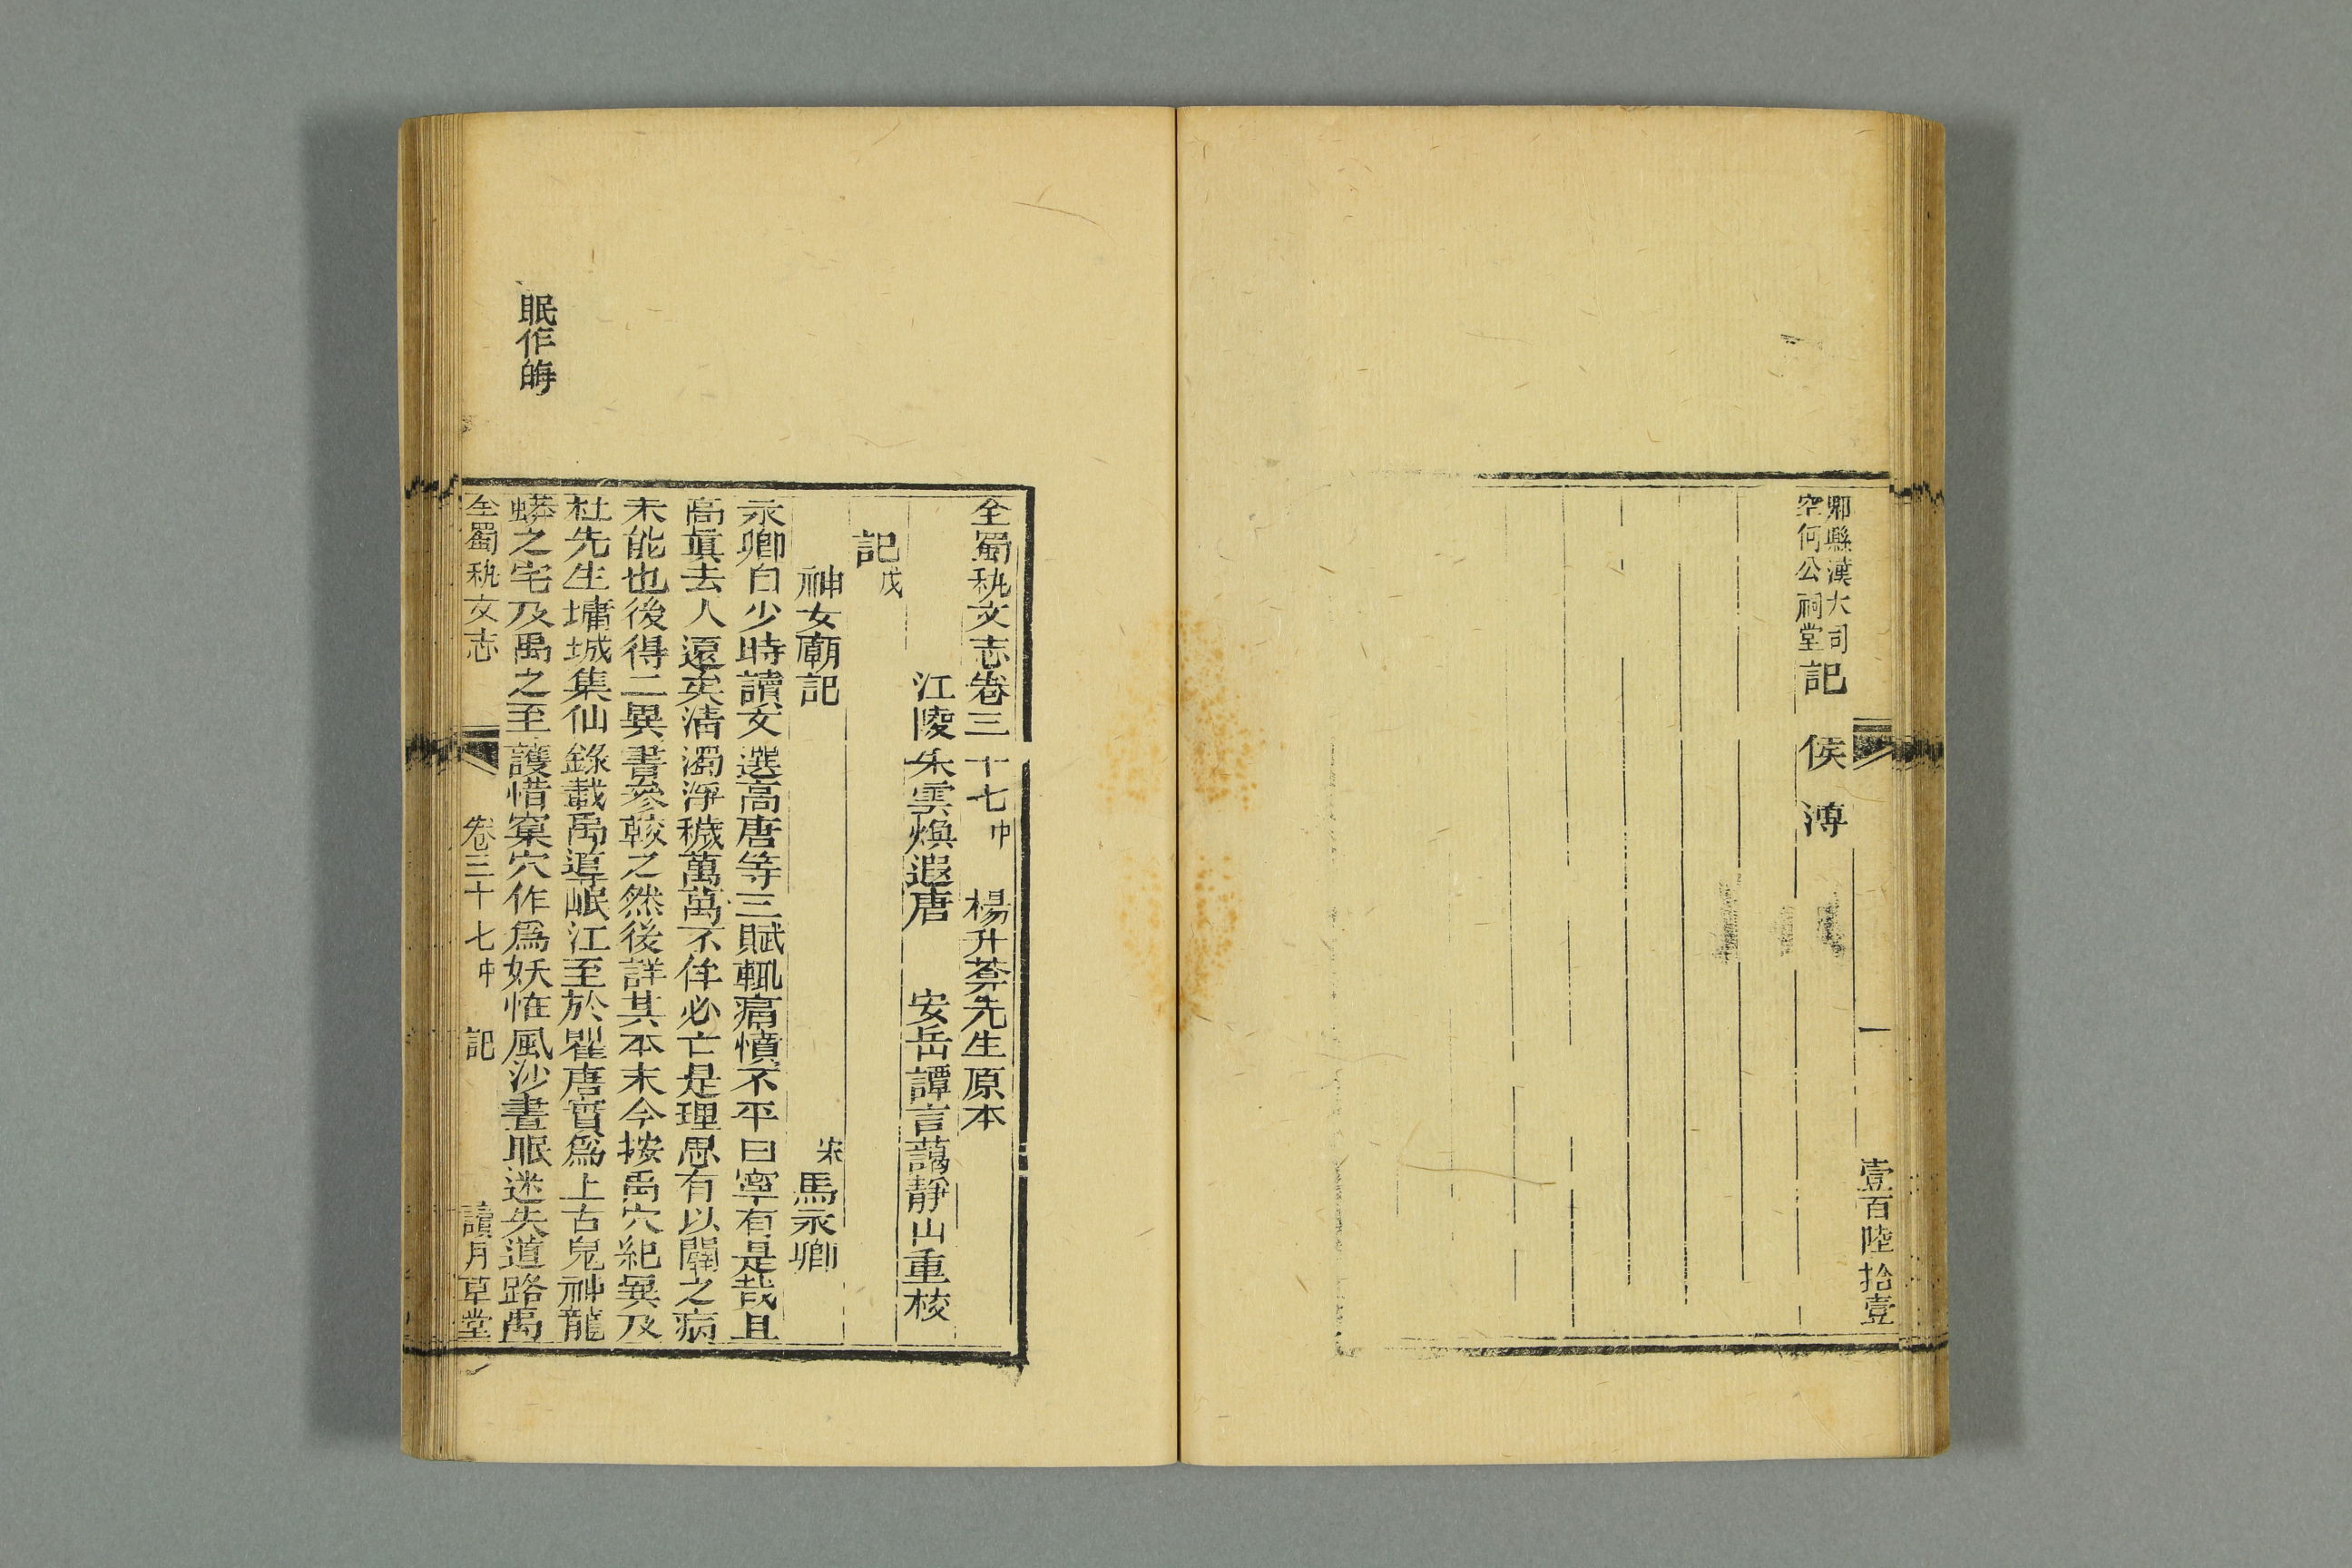 郫縣漢大司空何公祠堂記　侯溥
一　壹百陸拾壹
全蜀秇文志卷三十七中　楊升菴先生原本
江陵朱雲煥遐唐　安岳譚言藹靜山重校
記戊
神女廟記　宋馬永卿
永卿自少時讀文選高唐等三賦輒痛憤不平曰寧有是哉且
高眞去人遠矣清濁淨穢萬萬不侔必亡是理思有以闢之病
未能也後得二異書參較之然後詳其本末今按禹穴紀異及
杜先生墉城集仙錄載禹導岷江至於瞿唐實爲上古鬼神龍
蟒之宅及禹之至護惜窠穴作爲妖恠風沙晝眠迷失道路禹
眠作晦
全蜀秇文志　卷三十七中　記　讀月草堂